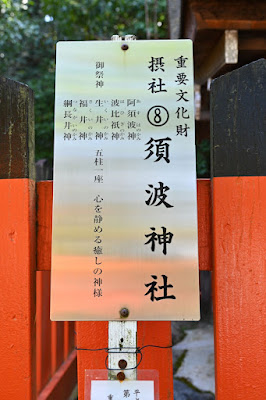 重要文化財
摂社⑧須波神社
御祭神
阿須波神
波比祇神
生井神
福井神
綱長井神
五柱一座 心を静める癒しの神様
平
第
重